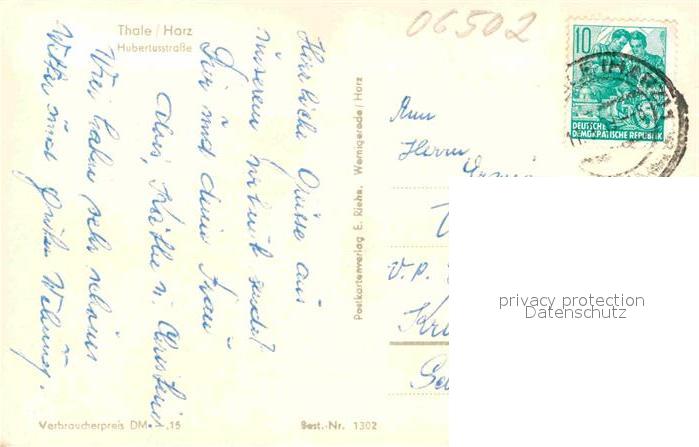 Thale / Harz
Hubertusstraße
06502
10
DEUTSCHE
DEMOKRATISCHE REPUBLIK
Herzliche Grüsse aus
unserem sendet
Dir und deine Frau
Käthe u. Christine
Wir haben sehr schönes
Wetter und gute
Postkartenverlag E. Riehn, Wernigerode/Harz
An
Herrn
V.P.
privacy protection
Datenschutz
Verbraucherpreis DM -,15
Best.-Nr. 1302